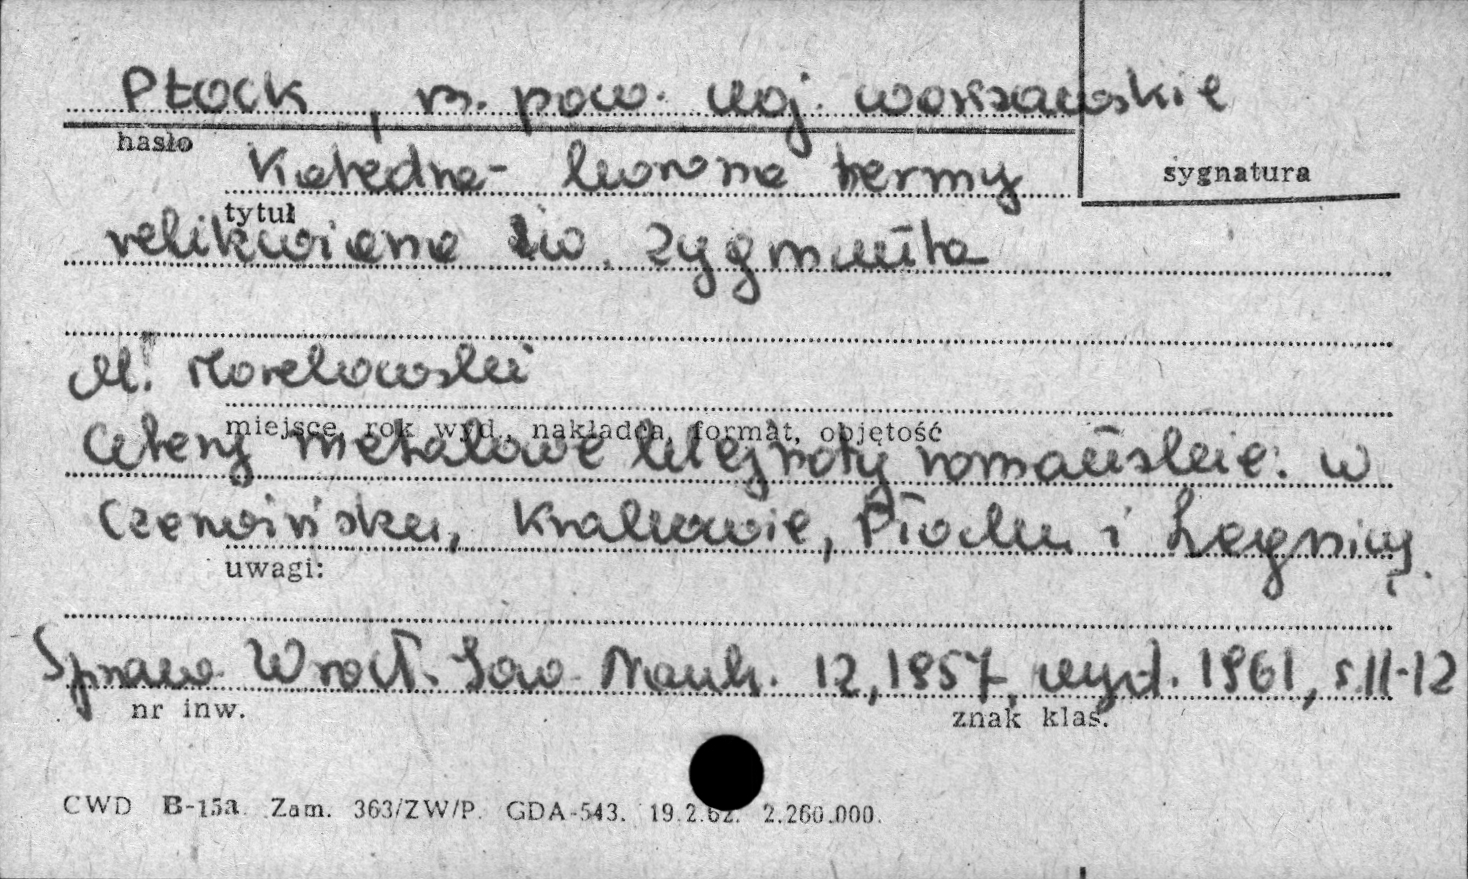 Płock, m. pow. woj. warszawskie
hasło
sygnatura
Katedra - korona hermy
tytuł
relikwiarza św. Zygmunta
M. Morelowski
miejsce, rok wyd., nakładca, format, objętość
Cztery metalowe klejnoty romańskie: w
Czerwińsku, Krakowie, Płocku i Legnicy.
uwagi:
Spraw. Wrocł. Tow. Nauk. 12, 1957, wyd. 1961, s. 11-12
nr inw.
znak klas.
CWD B-15a Zam. 363/ZW/P. GDA-543. 19.2.62. 2.260.000.